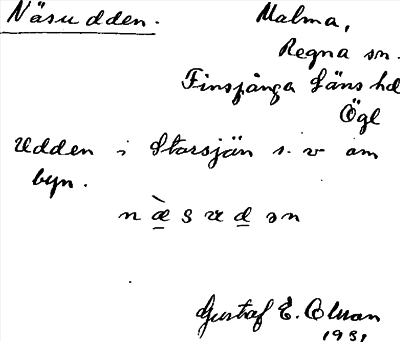 Näsudden. Malma,
Regna sn.
Finspånga läns hd
Ögl
Udden i Storsjön s.v om
byn.
n æ̀ s u d ə n
Gustaf E. Olsson
1931